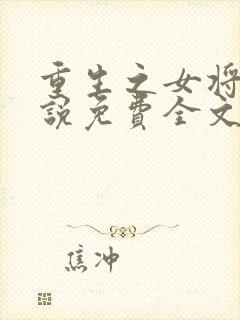 重生之女将
说免费全文
焦冲